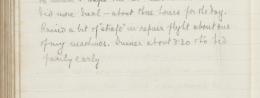 did more
— about three hours for the day.
Raised a bit of "strafe" in repair flight about one
of my machines. Dinner about 7.30 to bid
fairly early